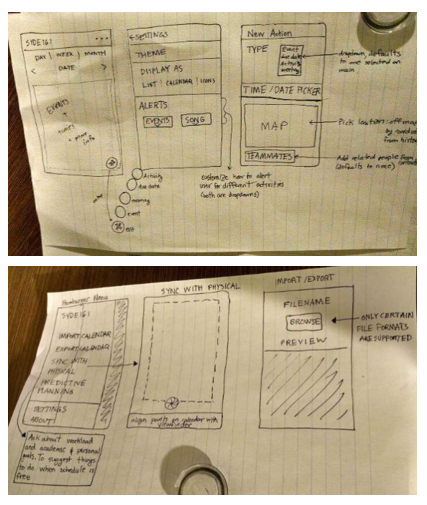 SYDE161 ...
DAY | WEEK | MONTH
< DATE >
EVENTS
+
times
+ place
info
activity
due date
meeting
event
exit
← SETTINGS
THEME
DISPLAY AS
LIST | CALENDAR | ICONS
ALERTS
EVENTS SONG
customize how to alert
user for different activities
(both are dropdowns)
New Action
TYPE
Event
due date
activity
meeting
dropdown, defaults
to one selected on
main
TIME/DATE PICKER
MAP
Pick location off map
by
from
TEAMMATES
Add related people from
(defaults to none)
Hamburger Menu
SYDE161
IMPORT CALENDAR
EXPORT CALENDAR
SYNC WITH
PHYSICAL
PREDICTIVE
PLANNING
SETTINGS
ABOUT
Ask about workload
and academic & personal
goals. To suggest things
to do when schedule is
free
SYNC WITH PHYSICAL
Align points on calendar with
viewfinder
IMPORT/EXPORT
FILENAME
BROWSE
PREVIEW
ONLY CERTAIN
FILE FORMATS
ARE SUPPORTED